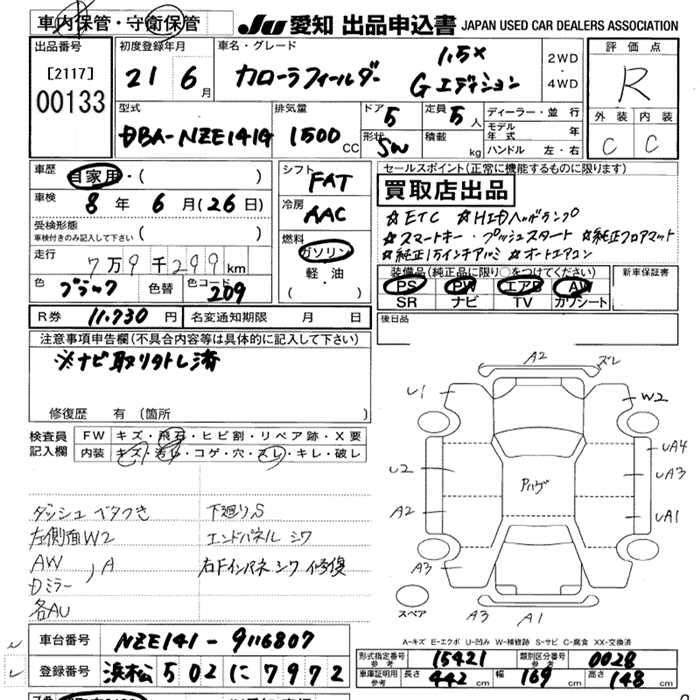 車内保管・守衛保管
JU 愛知 出品申込書 JAPAN USED CAR DEALERS ASSOCIATION
出品番号
[2117]
00133
初度登録年月
21 6月
車名・グレード
カローラフィールダー 1.5X Gエディション
2WD・4WD
評価点
R
外装 内装
C C
型式
DBA-NZE141G
排気量
1500 CC
ドア
5
形状
SW
定員
5人
積載 kg
ディーラー・並行
モデル年式 年
ハンドル 左・右
車歴
自家用・( )
車検
8年 6月(26日)
受検形態
車検付きのみ記入して下さい ( )
走行
7万9千299km
色 ブラック 色替 色コード 209
シフト
FAT
冷房
AAC
燃料
ガソリン
軽・油
( )
セールスポイント(正常に機能するものに限ります)
買取店出品
☆ETC ☆HIDヘッドランプ
☆スマートキー・プッシュスタート ☆純正フロアマット
☆純正15インチアルミ ☆オートエアコン
装備品(純正品に限り○をつけてください)
PS PW エアB AW
SR ナビ TV カワシート
新車保証書
後日品
R券 11,730円
名変通知期限 月 日
注意事項申告欄(不具合内容等は具体的に記入して下さい)
※ナビ取りはトレ済
修復歴 有(箇所
検査員記入欄
FW キズ・飛石・ヒビ割・リペア跡・X要
内装 キズ・汚レ・コゲ・穴・スレ・キレ・破レ
ダッシュ ベタつき
左側面W2
AW
Dミラー 、A
各AU
下廻りS
エンドパネル シワ
右Fインパネ シワ 修復
A2 ズレ
U1 W2
U2 UA4
UA3
A2 UA1
アハゲ
A3 A3
A3 A1
スペア
A-キズ E-エクボ U-凹み W-補修跡 S-サビ C-腐食 XX-交換済
車台番号 NZE141-9116807
登録番号 浜松 502 に 7972
形式指定番号 参考 15421
類別区分番号 参考 0028
車庫証明用 参考 長さ 442cm 幅 169cm 高さ 148cm